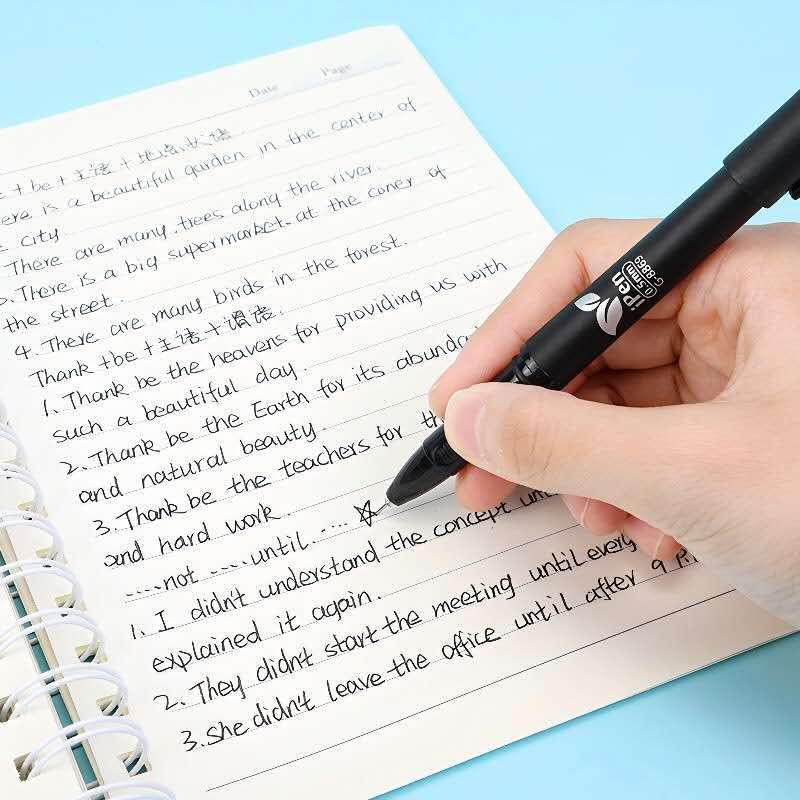 Date Page
+ be + 主语 + 地点状语
ere is a beautiful garden in the center of
city
There are many trees along the river.
There is a big supermarket at the coner of
the street.
4. There are many birds in the forest.
Thank +be +主语+谓语.
1. Thank be the heavens for providing us with
such a beautiful day.
2. Thank be the Earth for its abunda
and natural beauty.
3. Thank be the teachers for th
and hard work.
....not ....until ....
1. I didn't understand the concept unt
explained it again.
2. They didn't start the meeting until every
3. She didn't leave the office until after 9 P.M
iPen
0.5mm
G-8869